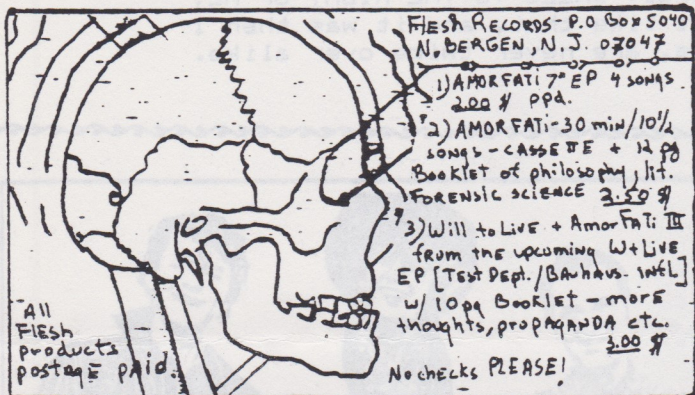 FLESH RECORDS P.O. BOX 5040
N. BERGEN, N.J. 07047
1) AMORFATI 7" EP 4 SONGS
2.00 $ ppd.
2) AMORFATI - 30 min/10 1/2
SONGS - CASSETTE + 12 pg
Booklet of philosophy, lit.
FORENSIC SCIENCE 3.50 $
3) Will to Live + AmorFATi III
from the upcoming W+Live
EP [Test Dept./BAUHAUS-INFL]
w/ 10 pg Booklet - more
thoughts, propAGANDA etc.
3.00 $
No checks PLEASE!
All
Flesh
products
postage paid.